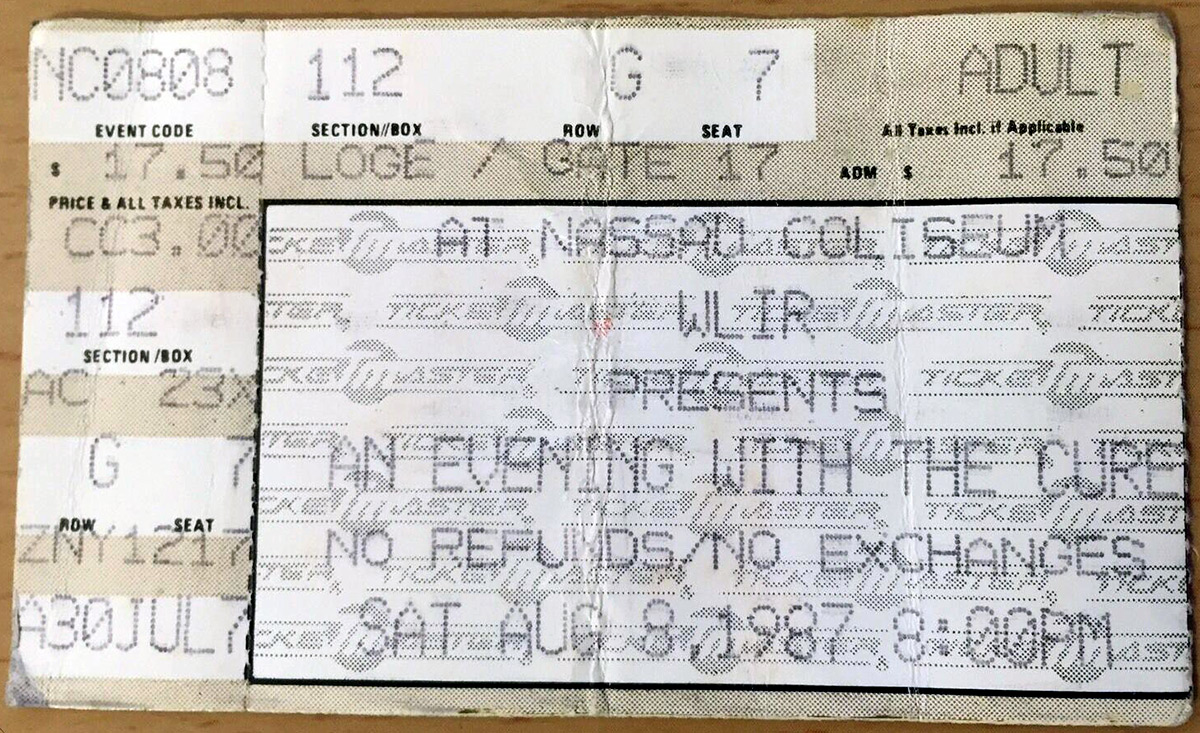 NC0808 112 G 7 ADULT
EVENT CODE SECTION//BOX ROW SEAT All Taxes Incl. if Applicable
$ 17.50 LOGE / GATE 17 ADM $ 17.50
PRICE & ALL TAXES INCL.
CC3.00 AT NASSAU COLISEUM
112 WLIR
SECTION/BOX
AC 23X PRESENTS
G 7 AN EVENING WITH THE CURE
ROW SEAT
ZNY1217 NO REFUNDS/NO EXCHANGES
A30JUL7 SAT AUG 8,1987 8:00PM